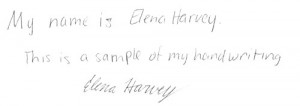 My name is Elena Harvey.
This is a sample of my handwriting
Elena Harvey